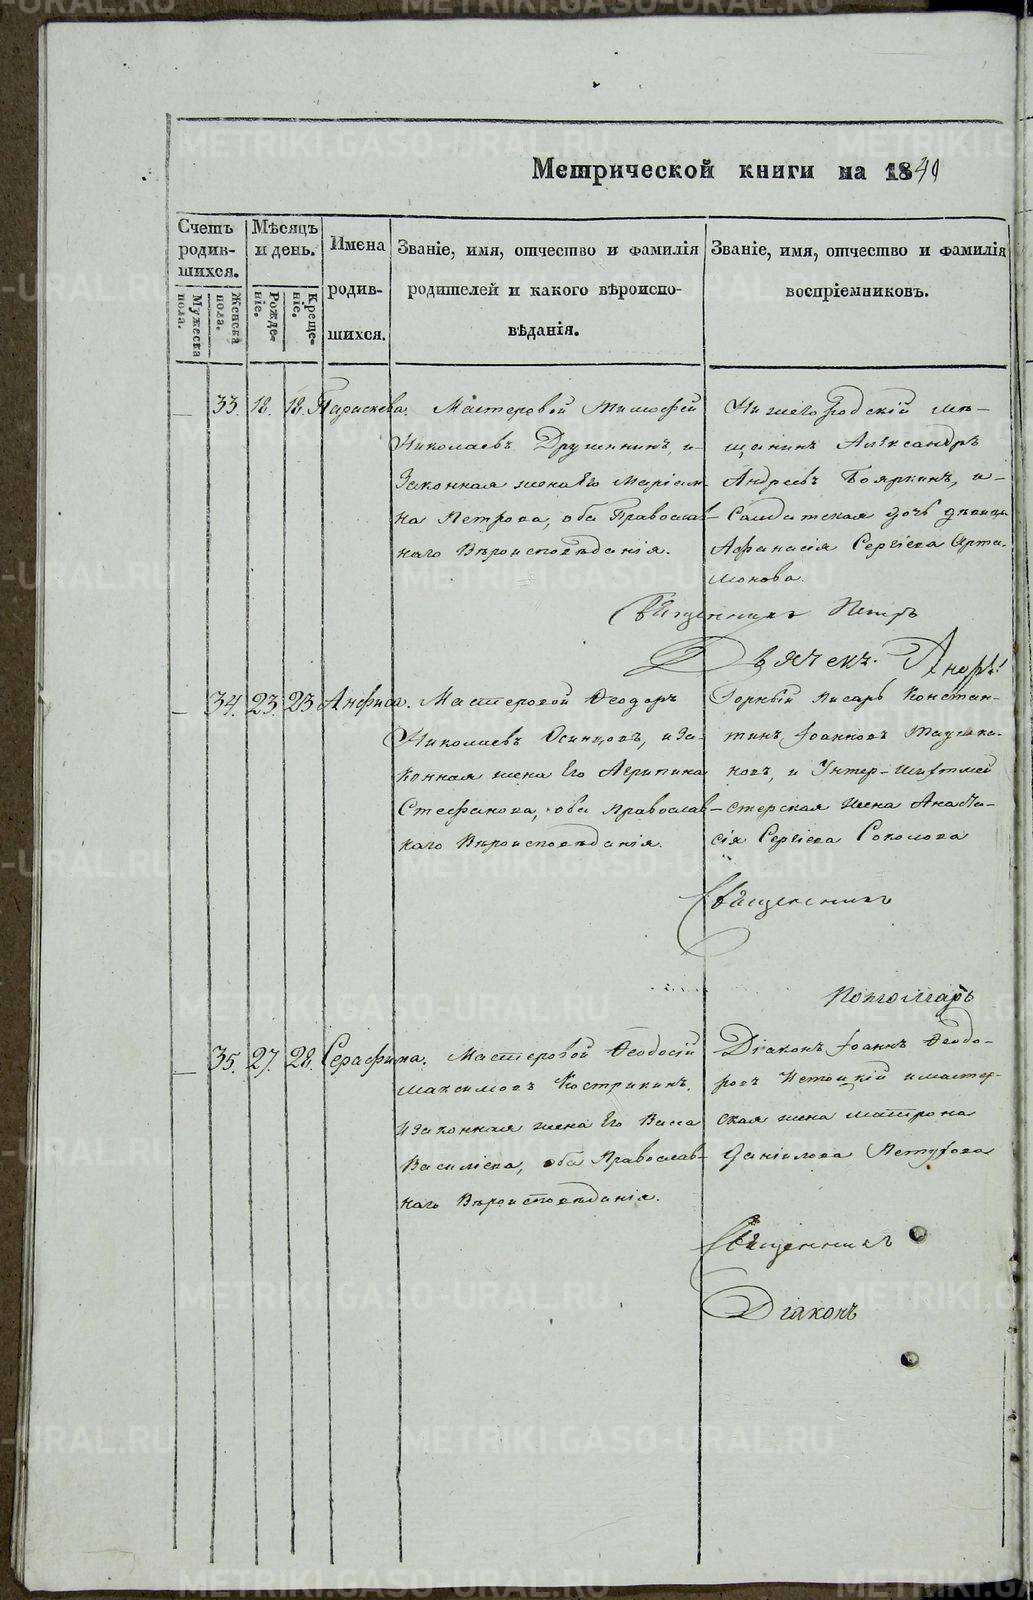 Метрической книги на 1841
Счетъ родив-шихся.
Мѣсяцъ и день.
Имена родив-шихся.
Званіе, имя, отчество и фамилія родителей и какого вѣроиспо-вѣданія.
Званіе, имя, отчество и фамилія воспріемниковъ.
Мужеска пола.
Женска пола.
Рожде-ніе.
Креще-ніе.
33. 18. 18. Параскева.
Мастеровой Тимофей
Николаевъ Дружининъ, и
Законная жена Его Маріам-
на Петрова, оба Православ-
наго Вѣроисповѣданія.
Нижегородскій мѣ-
щанинъ Александръ
Андреевъ Бояркинъ, и
Солдатская дочь дѣвица
Афанасія Сергіева Арта-
монова.
Священникъ Петръ
Дьячекъ. Андрей
34. 23. 23 Анфиса.
Мастеровой Ѳеодоръ
Николаевъ Осинцовъ, и за-
конная жена Его Агрипина
Стефанова, оба православ-
наго Вѣроисповѣданія.
Горный писарь Констан-
тинъ Іоанновъ
новъ, и Унтер-шихтмей
стерская жена Анаста-
сія Сергіева Соколова
Священникъ
Пономарь
35. 27. 28. Серафима.
Мастеровой Ѳеодосій
Максимовъ Кострикинъ,
и законная жена Его Васса
Василіева, оба Православ-
наго Вѣроисповѣданія.
Діаконъ Іоаннъ Ѳеодо-
ровъ Истоцкій и мастер-
ская жена Матрона
Даніилова Петухова
Священникъ
Діаконъ
METRIKI.GASO-URAL.RU